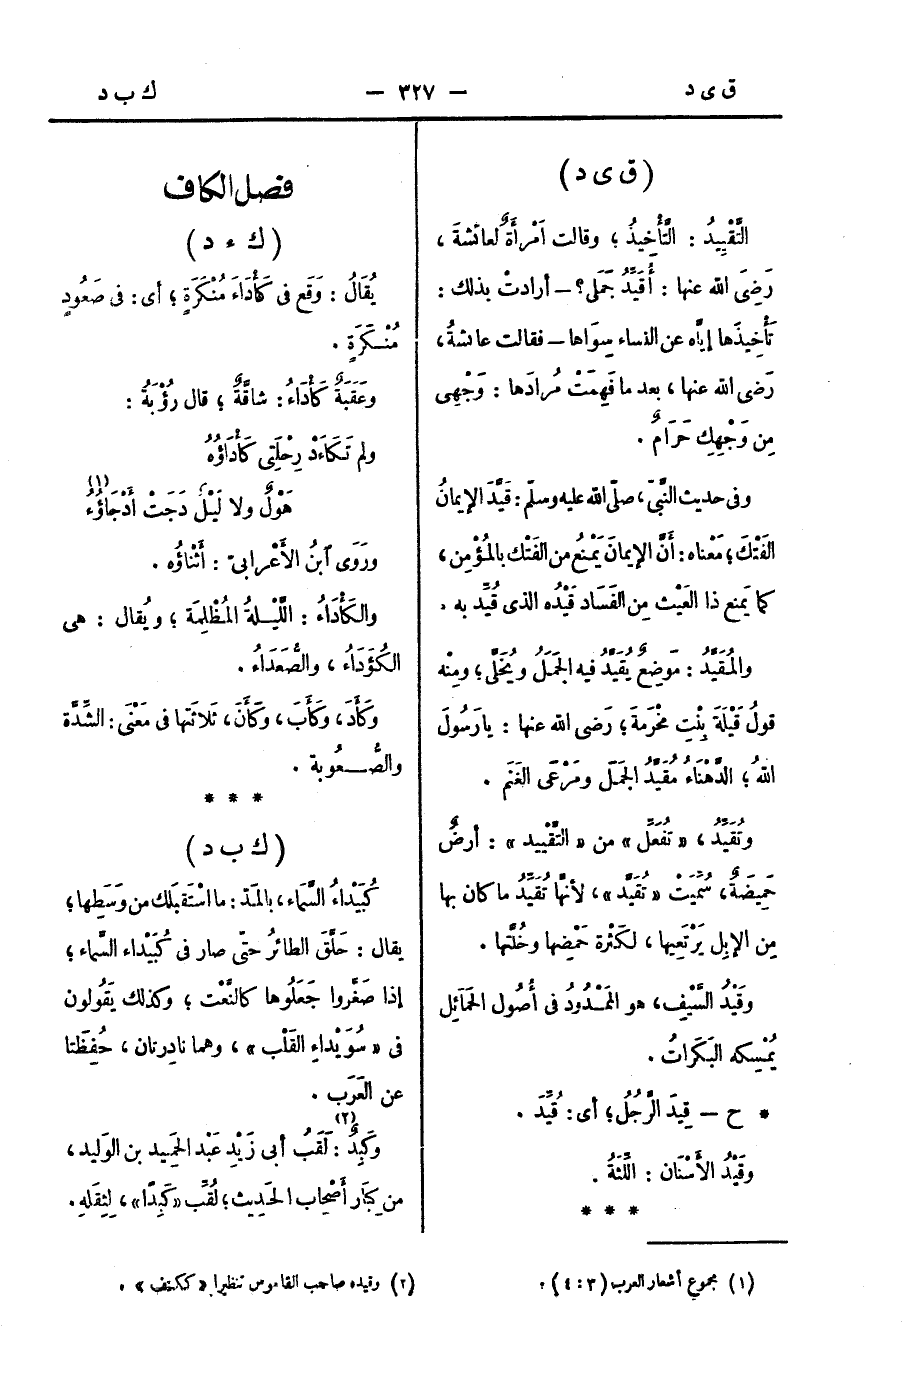 ق ى د
— ٣٢٧ —
ك ب د
(ق ى د)
التَّقْيِيدُ : التَّأْخِيذُ ؛ وقالت آمْرأةٌ لعائشةَ ،
رَضِىَ الله عنها : أُقَيِّدُ جَمَلى؟ — أرادتْ بذلك :
تَأْخِيذَها إيّاه عن النساء سِوَاها — فقالت عائشةُ ،
رَضى الله عنها ، بعد ما فَهِمَتْ مُرادَها : وَجْهِى
مِن وَجْهِكِ حَرَامٌ .
وفى حديث النَّبىّ ، صلّى الله عليه وسلّم : قَيَّدَ الإيمانُ
الفَتْكَ ؛ مَعْناه : أنَّ الإيمانَ يَمْنَع من الفَتْك بالمُؤْمِن ،
كما يَمنع ذا العَيْث مِن الفَسَاد قَيْدُه الذى قُيِّد به .
والمُقَيَّدُ : مَوْضِعٌ يُقَيَّدُ فيه الجَمَلُ ويُخَلَّى ؛ ومِنْه
قولُ قَيْلَةَ بِنْتِ مَخْرَمةَ ؛ رَضى الله عنها : يا رَسُولَ
اللهُ ؛ الدَّهْنَاءُ مُقَيَّدُ الجَمَل ومَرْعَى الغَنَم .
وتُقَيِّدُ ، « تُفَعِّلُ » من « التَّقْييد » : أرضٌ
حَمِيضَةٌ ، سُمِّيَتْ « تُقَيِّد » ، لأنّها تُقَيِّدُ ما كان بها
مِن الإبِل يَرْتَعِيها ، لكَثْرة حَمْضِها وخُلَّتِها .
وقَيْدُ السَّيْفِ ، هو المَمْدُودُ فى أُصُول الحَمَائِل
يُمْسِكه البَكَرَاتُ .
* ح — قِيدَ الرَّجُلُ ؛ أى : قُيِّدَ .
وقَيْدُ الأَسْنَان : اللِّثَةُ .
* * *
(١) مجموع أشعار العرب (٣ : ٤) :
فصل الكاف
(ك ء د)
يُقَالُ : وَقَع فى كَأْدَاءَ مُنْكَرَةٍ ؛ أى : فى صَعُودٍ
مُنْـكَرَةٍ .
وعَقَبَةٌ كَأْدَاءُ : شاقَّةٌ ؛ قال رُؤْبَةُ :
ولم تَـكَاءَدْ رِحْلَتِى كَأْدَاؤُهُ
هَوْلٌ ولا لَيْلٌ دَجَتْ أَدْجَاؤُهُ (١)
ورَوَى آبنُ الأَعْرابىّ : أَثْناؤُه .
والكَأْدَاءُ : اللَّيْـلةُ المُظْلِمَة ؛ ويُقال : هى
الكُؤَدَاءُ ، والصُّعَدَاءُ .
وكَأَدَ ، وكَأَبَ ، وكَأَنَ ، ثَلاثَتها فى مَعْنَى : الشِّدَّة
والصُّـــعُوبة .
* * *
(ك ب د)
كُبَيْداءُ السَّماء ، بالمَدّ : ما اسْتَقبَلك من وَسَطِها ؛
يقال : حَلَّقَ الطائرُ حتّى صار فى كُبَيْداء السَّماء ؛
إذا صَغَّروا جَعَلُوها كالنَّعْت ؛ وكذلك يَقُولون
فى « سُوَيْداءِ القَلْب » ، وهما نادِرتان ، حُفِظَتا
عن العَرَب .
وكَبِدٌ (٢) : لَقَبُ أبى زَيْدٍ عَبْد الحَمِيد بن الوَلِيد ،
من كِبَار أَصْحاب الحَدِيث ؛ لُقِّب « كَبِدًا » ، لِثِقَلِه .
(٢) وقيده صاحب القاموس تنظيرا « ككتِف » .